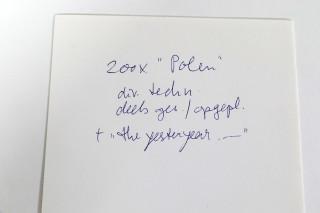 200x "Polen"
div. techn.
deels ges./opgepl.
+ "the yesteryear . —"